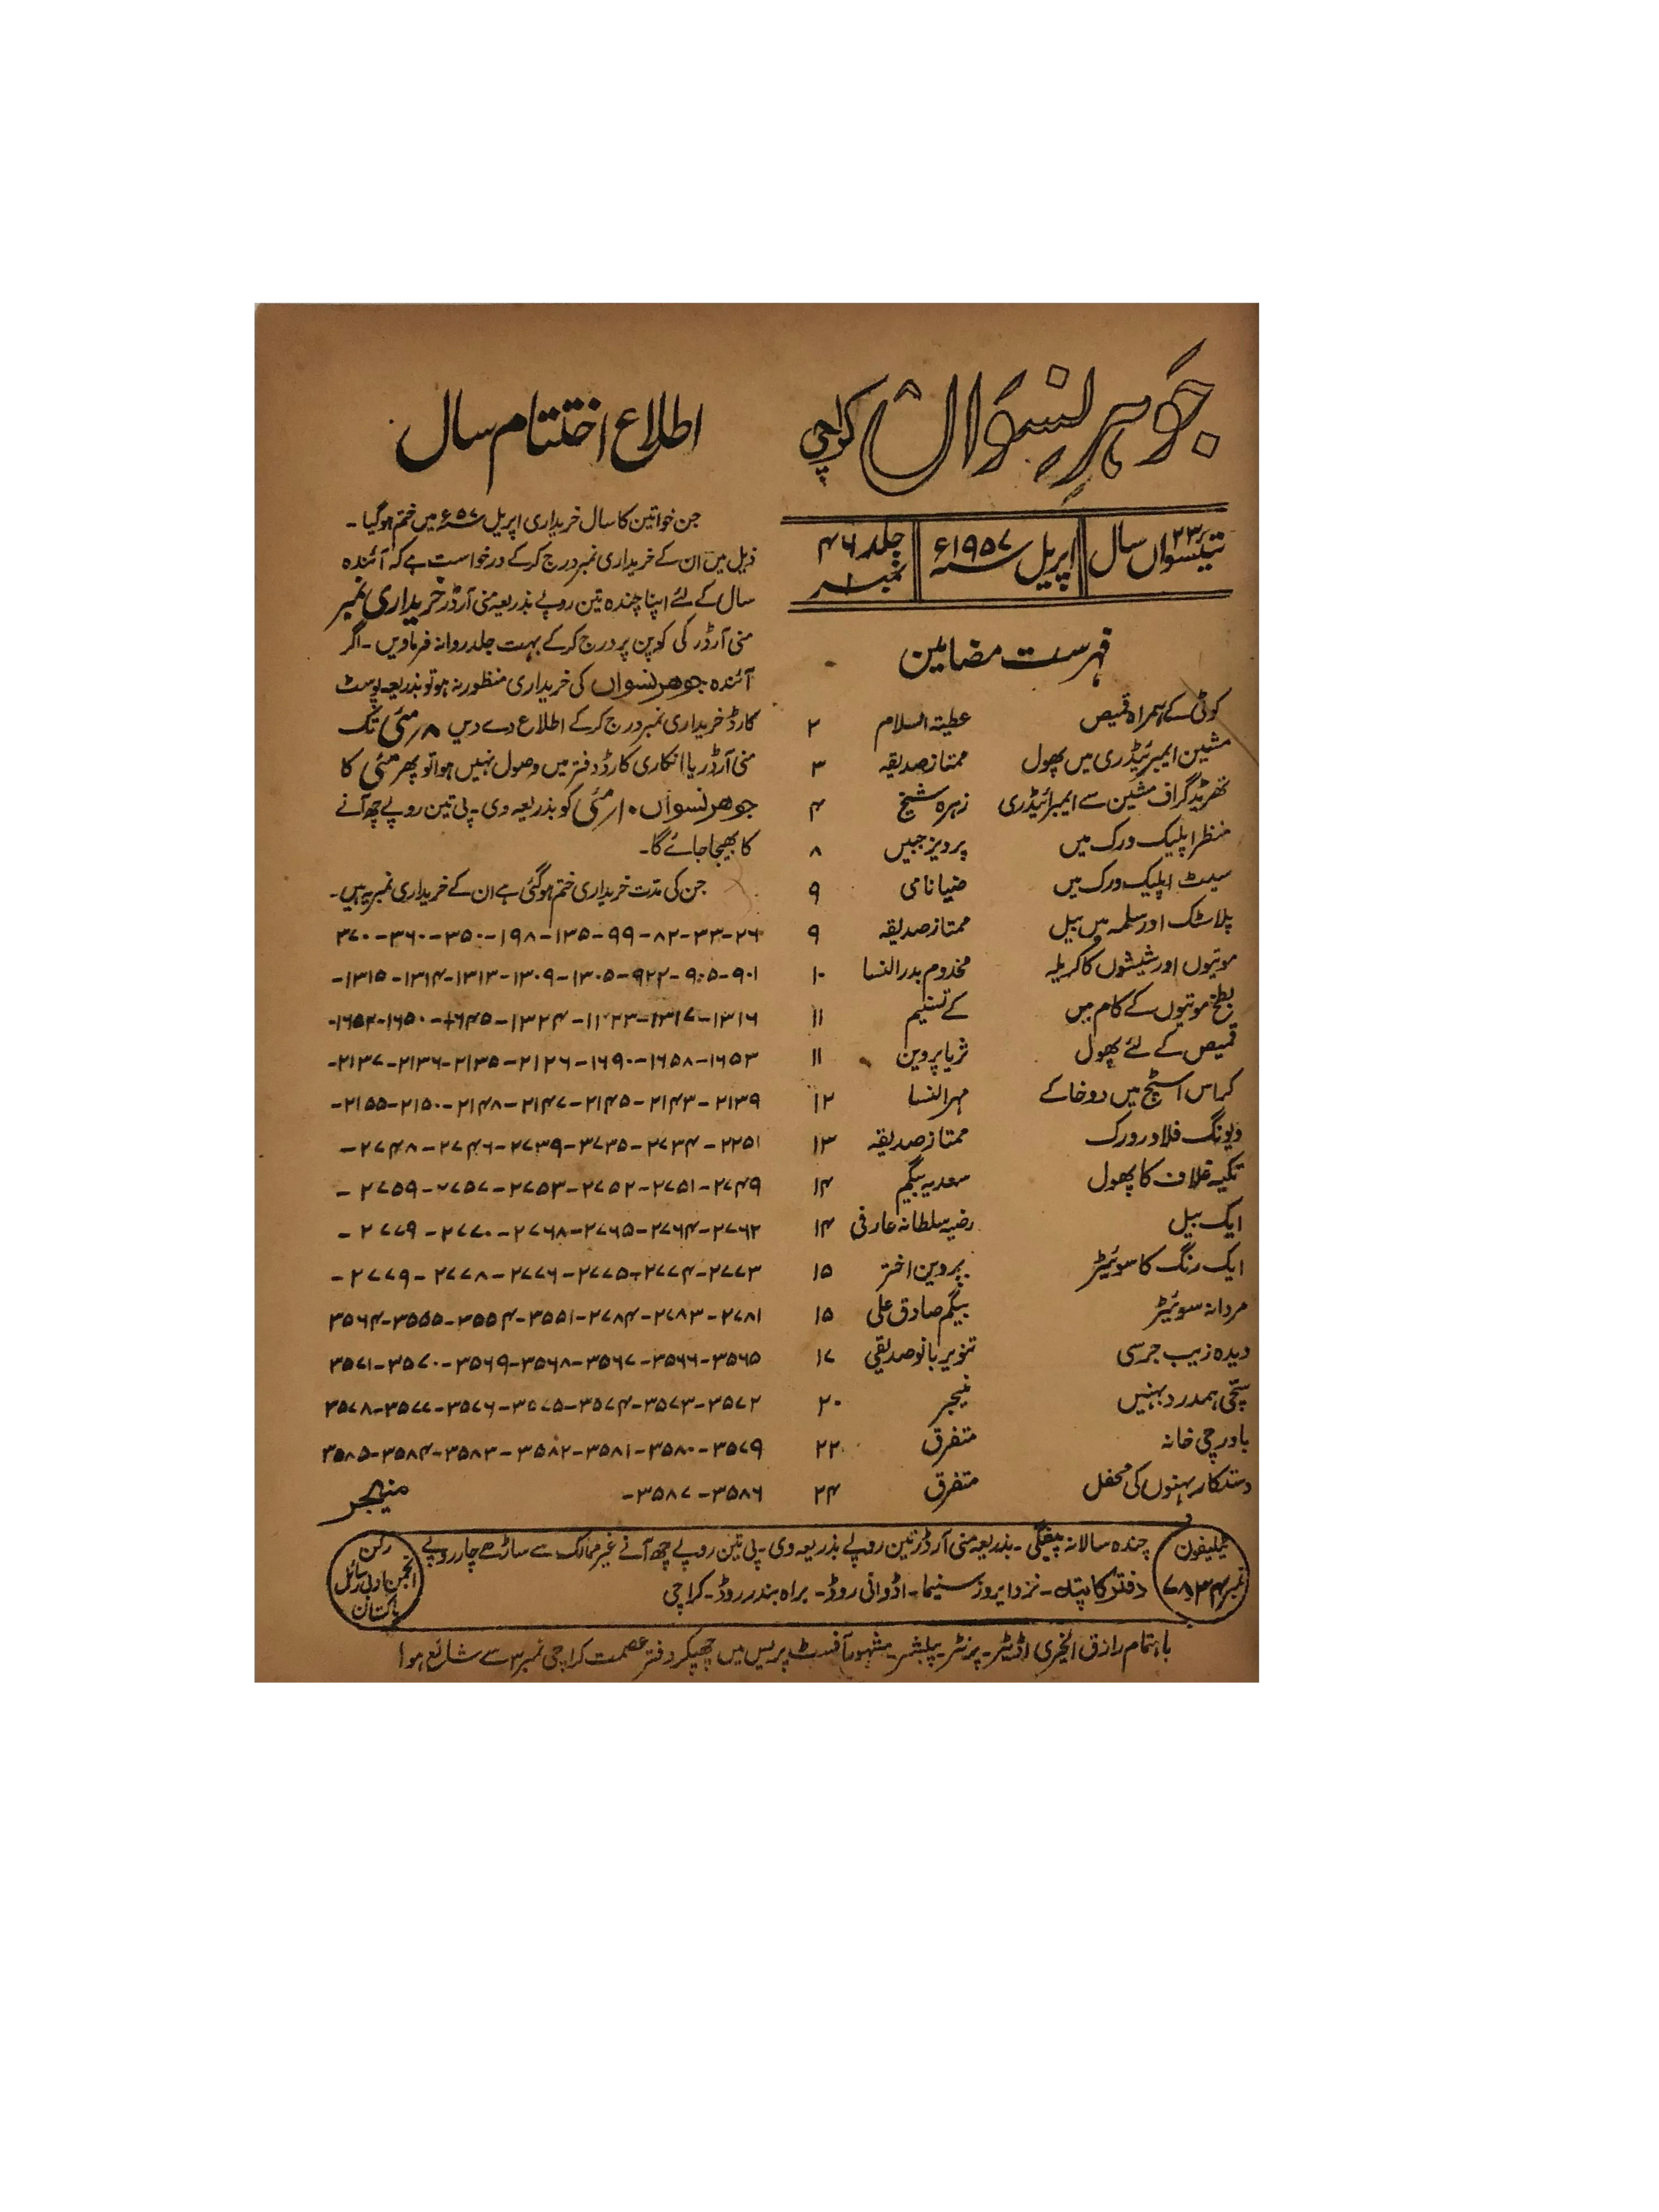 جوہرِ نسواں کراچی
تیئیسواں ۲۳ سال اپریل سنہ ۱۹۵۷ء جلد ۴۶ نمبر ۱
فہرست مضامین
کوٹی کے ہمراہ قمیص عطیۃ السلام ۲
مشین ایمبرئیڈری میں پھول ممتاز صدیقہ ۳
تھریڈ گراف مشین سے ایمبرائیڈری زہرہ شیخ ۴
منظر اپلیک ورک میں پرویز جبیں ۸
سیٹ اپلیک ورک میں ضیا نامی ۹
پلاسٹک اور سلمہ میں بیل ممتاز صدیقہ ۹
موتیوں اور شیشوں کا کریلہ مخدوم بدرالنسا ۱۰
بطخ موتیوں کے کام میں کے تسنیم ۱۱
قمیص کے لئے پھول ثریا پروین ۱۱
کراس اسٹچ میں دو خاکے مہرالنسا ۱۲
ویونگ فلاور ورک ممتاز صدیقہ ۱۳
تکیہ غلاف کا پھول سعدیہ بیگم ۱۴
ایک بیل رضیہ سلطانہ عارفی ۱۴
ایک رنگ کا سوئیٹر پروین اختر ۱۵
مردانہ سوئیٹر بیگم صادق علی ۱۵
دیدہ زیب جرسی تنویر بانو صدیقی ۱۷
سچی ہمدرد بہنیں منیجر ۲۰
باورچی خانہ متفرق ۲۲
دستکار بہنوں کی محفل متفرق ۲۴
اطلاع اختتام سال
جن خواتین کا سال خریداری اپریل سنہ ۵۷ء میں ختم ہو گیا ۔
ذیل میں ان کے خریداری نمبر درج کر کے درخواست ہے کہ آئندہ
سال کے لئے اپنا چندہ تین روپے بذریعہ منی آرڈر خریداری نمبر
منی آرڈر کی کوپن پر درج کر کے بہت جلد روانہ فرماویں ۔ اگر
آئندہ جوھر نسواں کی خریداری منظور نہ ہو تو بذریعہ پوسٹ
کارڈ خریداری نمبر درج کر کے اطلاع دے دیں ۸ر مئی تک
منی آرڈر یا انکاری کارڈ دفتر میں وصول نہیں ہوا تو پھر مئی کا
جوھر نسواں ۱۰ر مئی کو بذریعہ وی ۔ پی تین روپے چھ آنے
کا بھیجا جائے گا ۔
جن کی مدت خریداری ختم ہو گئی ہے ان کے خریداری نمبر یہ ہیں ۔
۲۶-۳۳-۸۲-۹۹-۱۳۵-۱۹۸-۳۵۰-۳۶۰-۳۷۰
۹۰۱-۹۰۵-۹۲۲-۱۳۰۵-۱۳۰۹-۱۳۱۳-۱۳۱۴-۱۳۱۵-
۱۳۱۶-۱۳۱۷-۱۱۲۳-۱۳۲۴-۱۶۴۵-۱۶۵۰-۱۶۵۲-
۱۶۵۳-۱۶۵۸-۱۶۹۰-۲۱۲۶-۲۱۳۵-۲۱۳۶-۲۱۳۷-
۲۱۳۹-۲۱۴۳-۲۱۴۵-۲۱۴۷-۲۱۴۸-۲۱۵۰-۲۱۵۵-
۲۲۵۱-۲۷۳۴-۲۷۳۵-۲۷۳۹-۲۷۴۶-۲۷۴۸-
۲۷۴۹-۲۷۵۱-۲۷۵۲-۲۷۵۳-۲۷۵۷-۲۷۵۹-
۲۷۶۲-۲۷۶۴-۲۷۶۵-۲۷۶۸-۲۷۷۰-۲۷۷۹-
۲۷۷۳-۲۷۷۴-۲۷۷۵-۲۷۷۶-۲۷۷۸-۲۷۷۹-
۲۷۸۱-۲۷۸۳-۲۷۸۴-۳۵۵۱-۳۵۵۴-۳۵۵۵-۳۵۶۴
۳۵۶۵-۳۵۶۶-۳۵۶۷-۳۵۶۸-۳۵۶۹-۳۵۷۰-۳۵۷۱
۳۵۷۲-۳۵۷۳-۳۵۷۴-۳۵۷۵-۳۵۷۶-۳۵۷۷-۳۵۷۸
۳۵۷۹-۳۵۸۰-۳۵۸۱-۳۵۸۲-۳۵۸۳-۳۵۸۴-۳۵۸۵
۳۵۸۶-۳۵۸۷-
منیجر
ٹیلیفون
نمبر ۷۸۳۴
چندہ سالانہ پیشگی ۔ بذریعہ منی آرڈر تین روپے بذریعہ وی ۔ پی تین روپے چھ آنے غیر ممالک سے ساڑھے چار روپے
دفتر کا پتہ ۔ نزد ایروز سنیما ۔ اڈوانی روڈ ۔ براہ بندر روڈ ۔ کراچی
رکن
انجمن ادبی رسائل
پاکستان
باہتمام رازق الخیری اڈیٹر ۔ پرنٹر ۔ پبلشر ۔ مشہور آفسٹ پریس میں چھپکر دفتر عصمت کراچی نمبر ۳ سے شائع ہوا